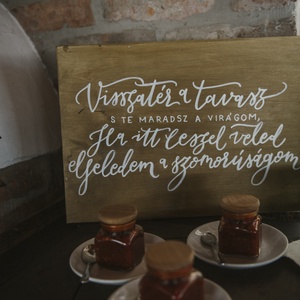 Visszatér a tavasz
S TE MARADSZ A VIRÁGOM,
Ha itt leszel veled
elfeledem a szomorúságom